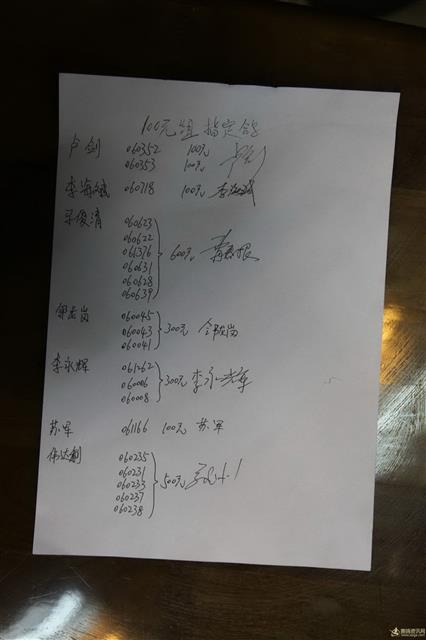 100元组 指定鸽
卢剑 060352 100元
060353 100元
李海斌 060718 100元 李海斌
宋俊清
060623
060622
061376
060631 600元
060628
060639
邹志岗 060045
060043 300元 邹志岗
060041
李永辉 061262
060006 300元 李永辉
060008
苏军 061166 100元 苏军
伟达利 060235
060231
060233 500元
060237
060238